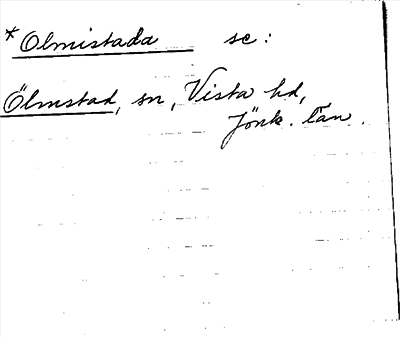 *Olmistada se:
Ölmstad, sn, Vista hd,
Jönk. län.